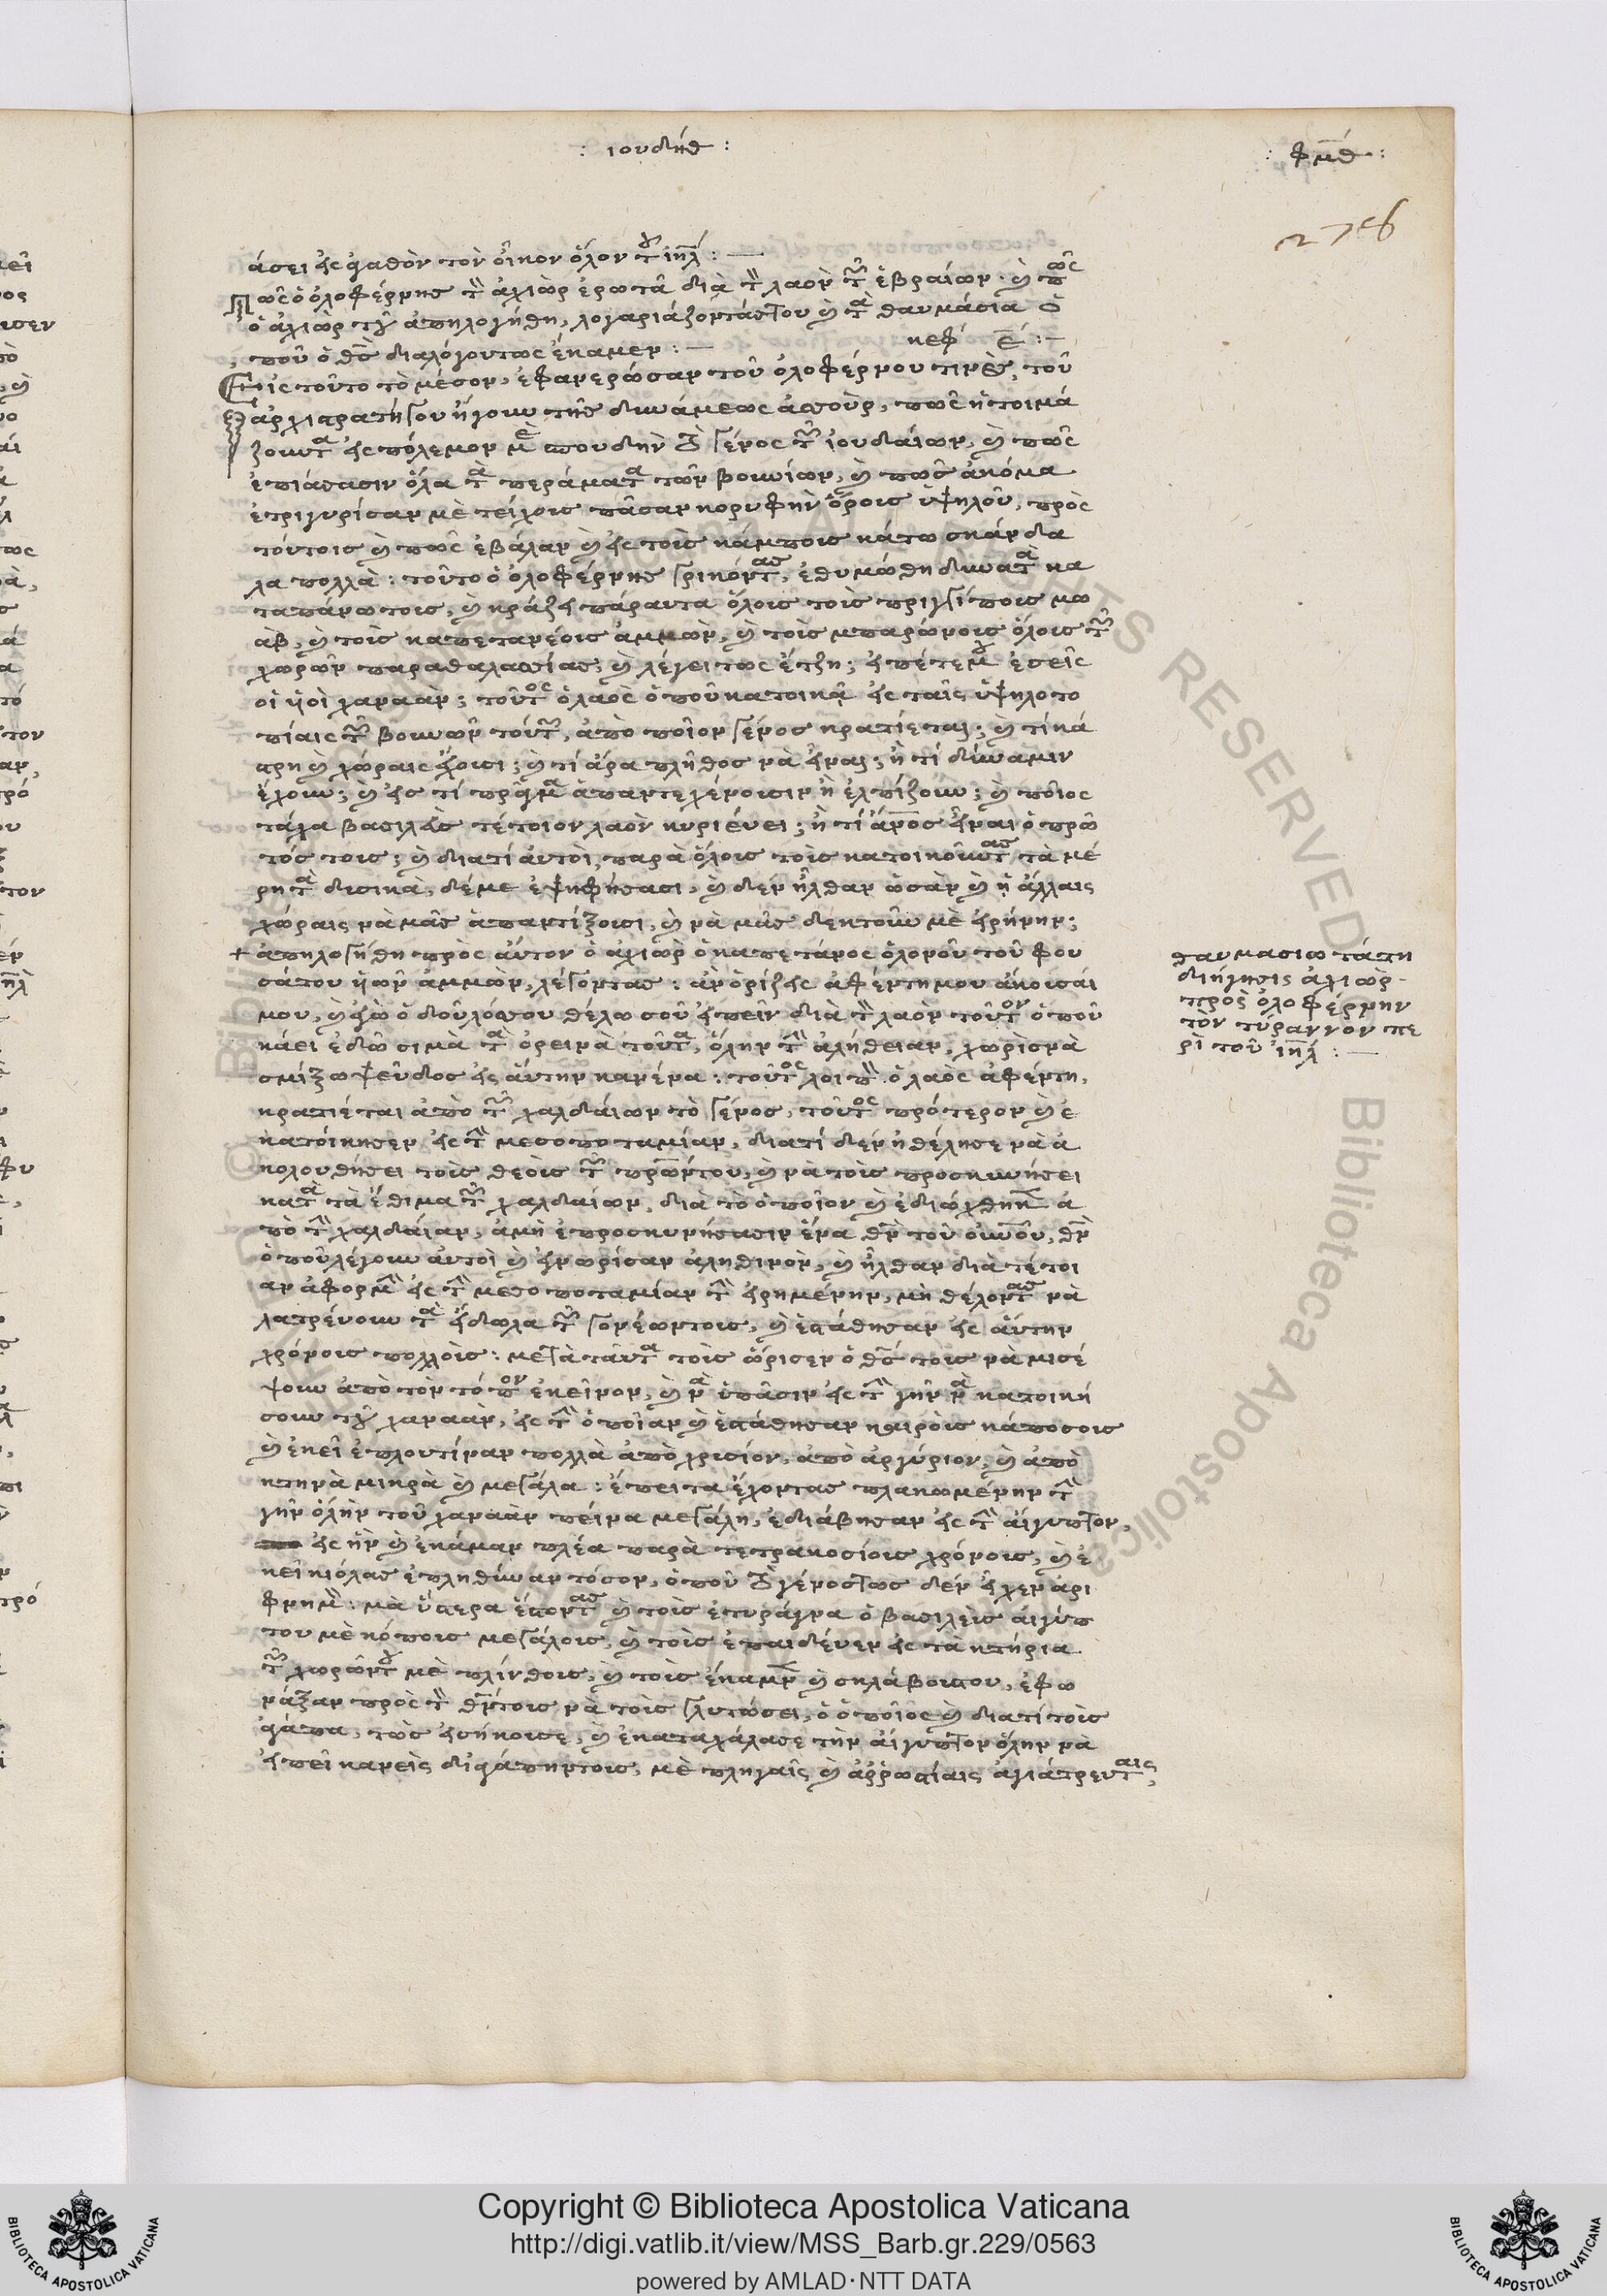 : ιουδήθ :
: φμθ :
2756
άσει εἰς ἀγαθὸν τὸν οἶκον ὅλον τοῦ ἰηλ :
Πῶς ὁ ὁλοφέρνης τὸν ἀχιὼρ ἐρωτᾶ διὰ τὸν λαὸν τῶν ἑβραίων· καὶ πῶς
ὁ ἀχιὼρ τοῦ ἀπηλογήθη, λογαριάζοντάς του καὶ τὰ θαυμάσια
ποῦ ὁ θς διαλόγουτως ἔκαμεν : κεφ ε :
Εἰς τοῦτο τὸ μέσον, ἐφανερώσαν τοῦ ὁλοφέρνου τινὲς, τοῦ
ἀρχιστρατήγου ἤγουν τῆς δυνάμεως ἀσοὺρ, πῶς ἡτοιμά
ζουνται εἰς πόλεμον μὲ σπουδὴν τὸ γένος τῶν ἰουδαίων, καὶ πῶς
ἐπιάσασιν ὅλα τὰ περάματα τῶν βουνίων, καὶ πῶς ἀκόμα
ἐτριγυρίσαν μὲ τείχοις πᾶσαν κορυφὴν ὄροις ὑψηλοῦ, πρὸς
τούτοις καὶ πῶς ἐβάλαν καὶ εἰς τοὶς κάμποις κάτω σκάνδα
λα πολλὰ : τοῦτο ὁ ὁλοφέρνης γρικόντας, ἐθυμώθη δυνατὰ κα
ταπάνωτοις, καὶ κράζει πάραυτα ὅλοις τοὶς πριγκίποις μω
ὰβ, καὶ τοὶς καπετανέοις ἀμμὼν, καὶ τοὶς μπαρώνοις ὅλοις τῶν
χωρῶν παραθαλασσίας, καὶ λέγει τως ἔτζη; εἰπέτε μου ἐσεῖς
οἱ υἱοὶ χαναὰν; τοῦτος ὁ λαὸς ὁποῦ κατοικᾶ εἰς ταῖς ὑψηλοτο
πίαις τῶν βουνῶν τούτων, ἀπὸ ποῖον γένος κρατιέται; καὶ τί κά
στρη καὶ χώραις ἔχοισι; καὶ τί ἄρα πλῆθος νὰ εἶναι; ἢ τί δύναμιν
ἔχουν; καὶ εἰς τί πρᾶγμα ἀπαντεχένοισιν ἢ ἐλπίζουν; καὶ ποῖος
τάχα βασιλεὺς τέτοιον λαὸν κυριεύει; ἢ τί ἄνος εἶναι ὁ πρῶ
τός τοις; καὶ διατί αὐτοὶ, παρὰ ὅλοις τοὶς κατοικοῦντας τὰ μέ
ρη τὰ δισικὰ, δέμε ἐψηφήσασι, καὶ δὲν ἦλθαν ὡσὰν καὶ ἡ ἄλλαις
χώραις νὰ μᾶς ἀπαντίξοισι, καὶ νὰ μᾶς δεκτοῦν μὲ εἰρήνην;
+ ἀπηλογήθη πρὸς αὐτὸν ὁ ἀχιὼρ ὁ καπετάνος ὁλονοῦ τοῦ φου
σάτου υἱῶν ἀμμὼν, λέγοντας : ἂν ὁρίζεις ἀφέντη μου ἄκοισαί
μου, καὶ ἐγὼ ὁ δοῦλόςσου θέλω σοῦ εἰπεῖν διὰ τὸν λαὸν τοῦτον ὁποῦ
κάει ἐδῶ σιμα τὰ ὀρεινὰ τοῦτα, ὅλην τὴν ἀλήθειαν, χωρισνὰ
σμίξω ψεῦδος εἰς αὐτὴν κανένα : τοῦτος λοιπὸν ὁ λαὸς ἀφέντη,
κρατιέται ἀπὸ τῶν χαλδαίων τὸ γένος, τοῦτος πρότερον καὶ ἐ
κατοίκησεν εἰς τὴν μεσοποταμίαν, διατί δὲν ἠθέλησε νὰ ἀ
κολουθήσει τοὶς θεοὶς τῶν πρῶντου, καὶ νὰ τοὶς προσκυνήσει
κατὰ τὰ ἔθιμα τῶν χαλδαίων, διὰ τὸ ὁποῖον καὶ ἐδιώχθηκαν ἀ
πὸ τὴν χαλδαίαν, ἀμὴ ἐπροσκυνήσασιν ἕνα θν τοῦ οὐνοῦ, θν
ὁποῦ λέγουν αὐτοὶ καὶ ἐγνωρίσαν ἀληθινὸν, καὶ ἦλθαν διὰ τέτοι
αν ἀφορμὴν εἰς τὴν μεσοποταμίαν τὴν εἰρημένην, μὴ θέλοντας νὰ
λατρεύουν τὰ εἴδωλα τῶν γονέωντοις, καὶ ἐστάθησαν εἰς αὐτὴν
χρόνοις πολλοὶς : μετὰ ταῦτα τοὶς ὥρισεν ὁ θς τοις νὰ μισέ
ψουν ἀπὸ τὸν τόπον ἐκεῖνον, καὶ νὰ ὑπᾶσιν εἰς τὴν γῆν νὰ κατοική
σουν τοῦ χαναὰν, εἰς τὴν ὁποῖαν καὶ ἐστάθησαν καιροὶς κάποσοις
καὶ ἐκεῖ ἐπλουτίναν πολλὰ ἀπὸ χρισίον, ἀπὸ ἀργύριον, καὶ ἀπὸ
κτηνὰ μικρὰ καὶ μεγάλα : ἔπειτα ἔχοντας πλακωμένην τὴν
γῆν ὁλὴν τοῦ χαναὰν πείνα μεγάλη, ἐδιάβησαν εἰς τὴν αἴγυπτον,
εἰς ἣν καὶ ἐκάμαν πλέα παρὰ τετρακοσίοις χρόνοις, καὶ ἐ
κεῖ κιόλας ἐπληθύναν τόσον, ὁποῦ τὸ γένοςτως δὲν εἶχεν ἀρι
θμημὸν : μὰ ὕστερα ἔστοντας καὶ τοὶς ἐτυράγνα ὁ βασιλεὶς αἰγύπ
του μὲ κόποις μεγάλοις, καὶ τοὶς ἐπαιδένεν εἰς τὰ κτήρια
τῶν χωρῶν του μὲ πλίνθοις, καὶ τοὶς ἔκαμεν καὶ σκλάβοιςτου, ἐφω
νάξαν πρὸς τὸν θντοις νὰ τοὶς γλυτώσει, ὁ ὁποῖος καὶ διατί τοὶς
ἀγάπα, τῶς εἰσήκοισε, καὶ ἐκαταχάλασε τὴν αἴγυπτον ὅλην νὰ
εἰπεῖ κανεὶς δἰἀγάπηντοις, μὲ πληγαῖς καὶ ἀῤῥωστίαις ἀγιάτρευταις,
θαυμασιωτάτη
διήγησις ἀχιὼρ
πρὸς ὁλοφέρνην
τὸν τύραννον πε
ρὶ τοῦ ἰηλ :
Copyright © Biblioteca Apostolica Vaticana
http://digi.vatlib.it/view/MSS_Barb.gr.229/0563
powered by AMLAD·NTT DATA
BIBLIOTECA APOSTOLICA VATICANA
BIBLIOTECA APOSTOLICA VATICANA